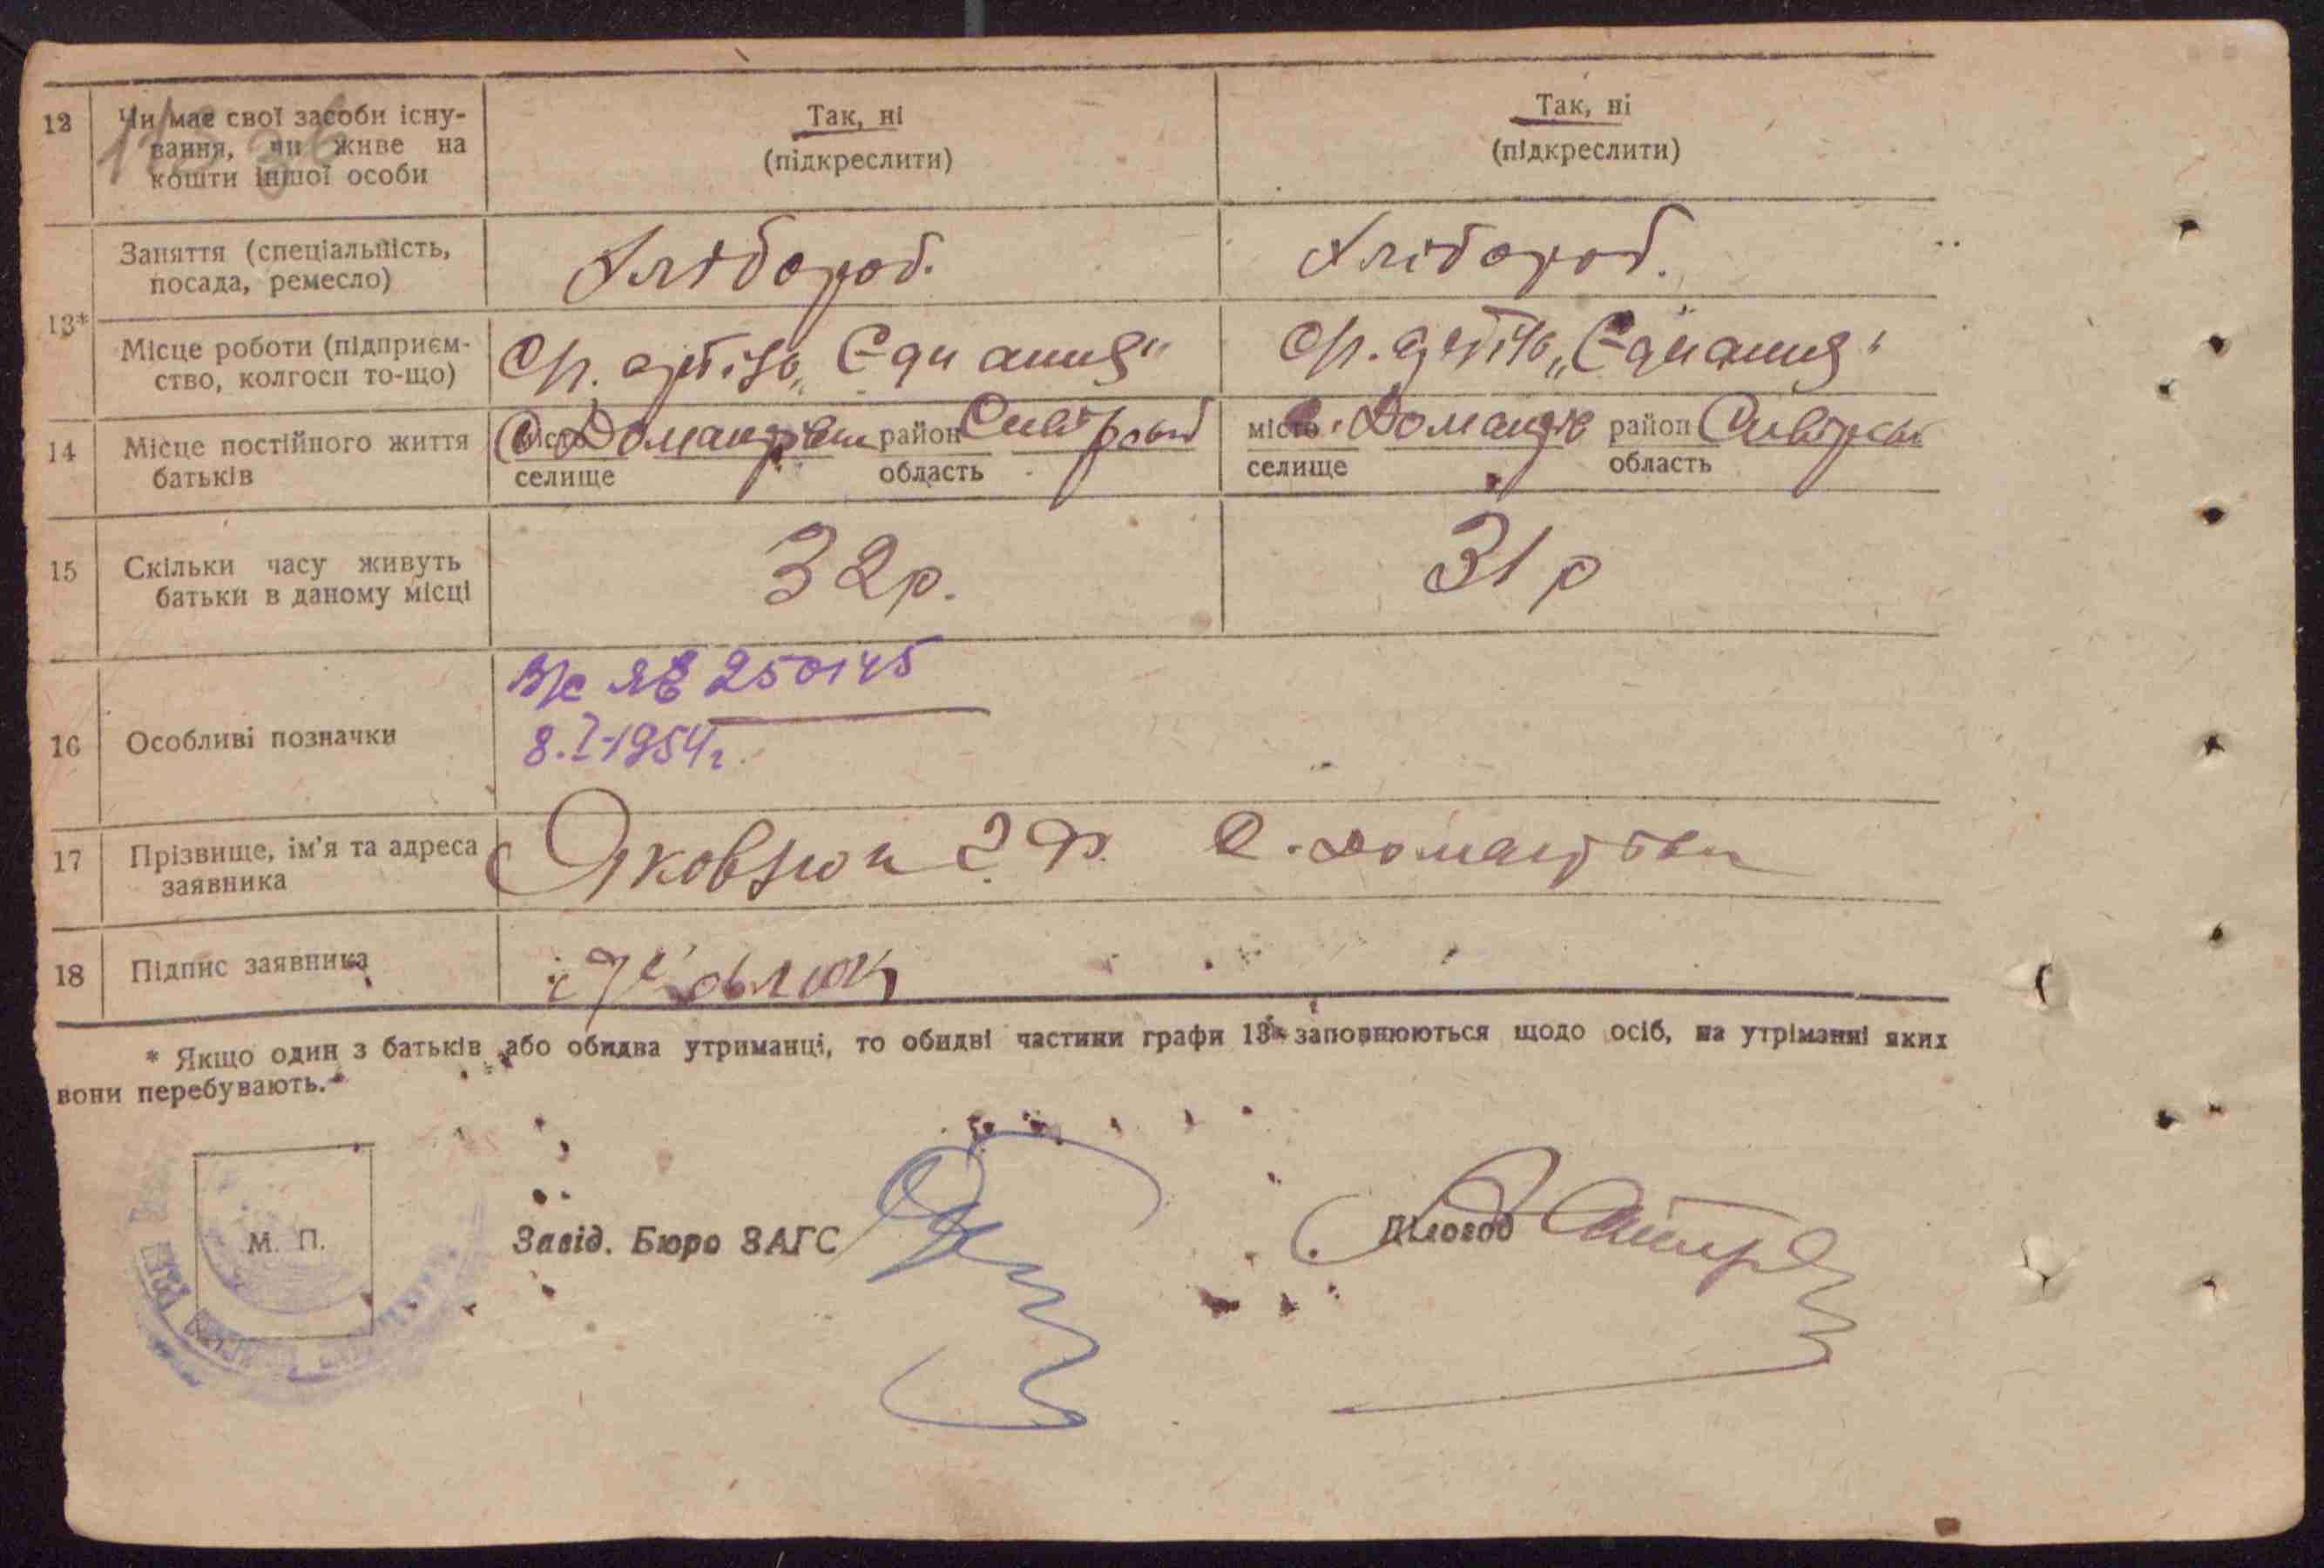 12 Чи має свої засоби існу-
вання, чи живе на
кошти іншої особи
Так, ні
(підкреслити)
Так, ні
(підкреслити)
13*
Заняття (спеціальність,
посада, ремесло)
Хлібороб.
Хлібороб.
Місце роботи (підприєм-
ство, колгосп то-що)
Ср. артіль „Єднання"
Ср. артіль „Єднання"
14 Місце постійного життя
батьків
місто С Домантівки район Сквірськ
селище область
місто с. Домантів район Сквірськ
селище область
15 Скільки часу живуть
батьки в даному місці
32 р.
31 р
16 Особливі позначки
ЯВ 250145
8.I-1954 г.
17 Прізвище, ім'я та адреса
заявника
Яковлюк Ф. С. Домантівка
18 Підпис заявника
* Якщо один з батьків або обидва утриманці, то обидві частини графи 13 заповнюються щодо осіб, на утріманні яких
вони перебувають.
М. П.
Завід. Бюро ЗАГС
Діловод